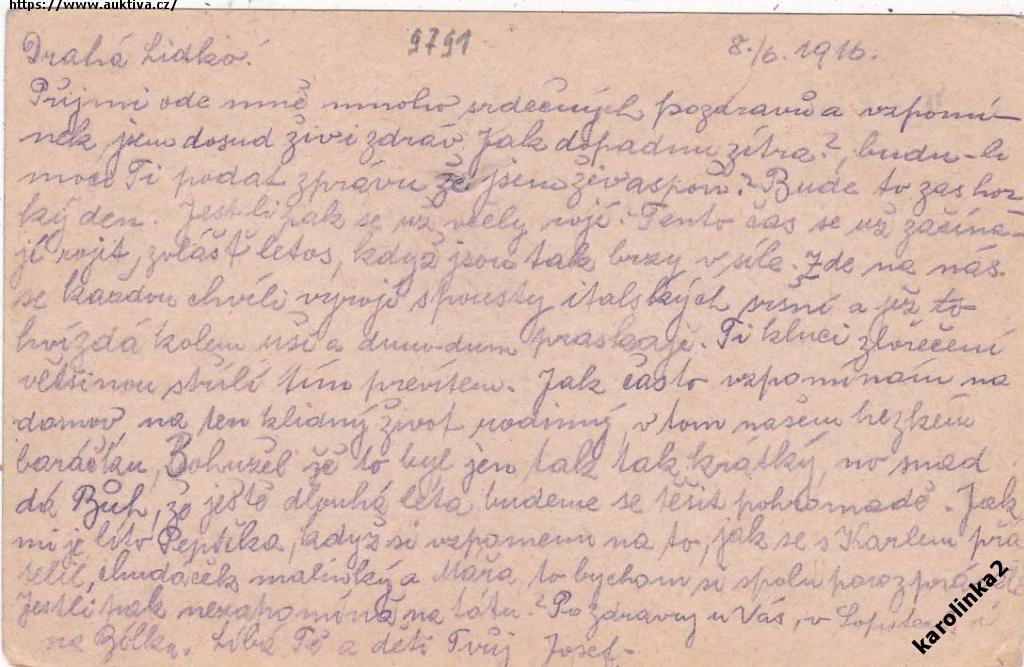 https://www.auktiva.cz/
Drahá Lidko! 9791 8./6. 1916.
Přijmi ode mně mnoho srdečných pozdravů a vzpomí-
nek, jsem dosud živ i zdráv. Jak dopadnu zítra?, budu-li
moci Ti podat zprávu že jsem živ aspoň? Bude to zas hor-
ký den. Jestli pak se už včely rojí? Tento čas se už začína-
jí rojit, zvlášť letos, když jsou tak brzy v síle. Zde na nás
se každou chvíli vyrojí spousty italských sršní a již to
hvízdá kolem uší a dum-dum praskaje. Ti kluci zlořečení
většinou střílí tím prevítem. Jak často vzpomínám na
domov, na ten klidný život rodinný, v tom našem hezkém
baráčku, Bohužel že to byl jen tak tak krátký, no snad
dá Bůh, že ještě dlouhá léta budeme se těšit pohromadě. Jak
mi je líto Pepíčka, když si vzpomenu na to, jak se s Karlem přá
telil, chudáček malinký a Mařa, to bychom si spolu
Jestli pak nezapomíná na tátu? Pozdravuj u Vás, v i
na Líbá Tě a děti Tvůj Josef.
karolinka2